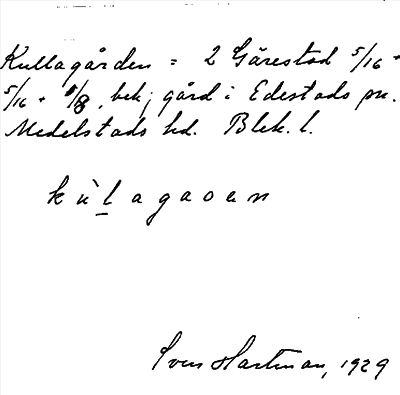 Kullagården = 2 Gärestad 5/16 +
5/16 + 1/8, bek; gård i Edestads pn.
Medelstads hd. Blek. l.
kùlagaoen
Sven Hartman, 1929